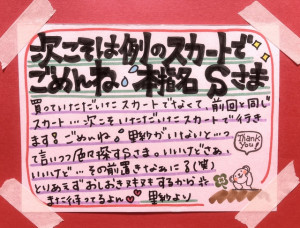 次こそは例のスカートで
ごめんね 本指名Sさま
買っていただいたスカートでなくて、前回と同じ
スカート…次こそいただいたスカートで行き
ます ごめんね。里紗がいないと…っ
て言いつつ色々探すSさま。いいけどさぁ、
いいけど…その前置きなぁに?(笑)
とりあえずおしおきヌキヌキするから
また待ってるよん 里紗より
Thank
You!